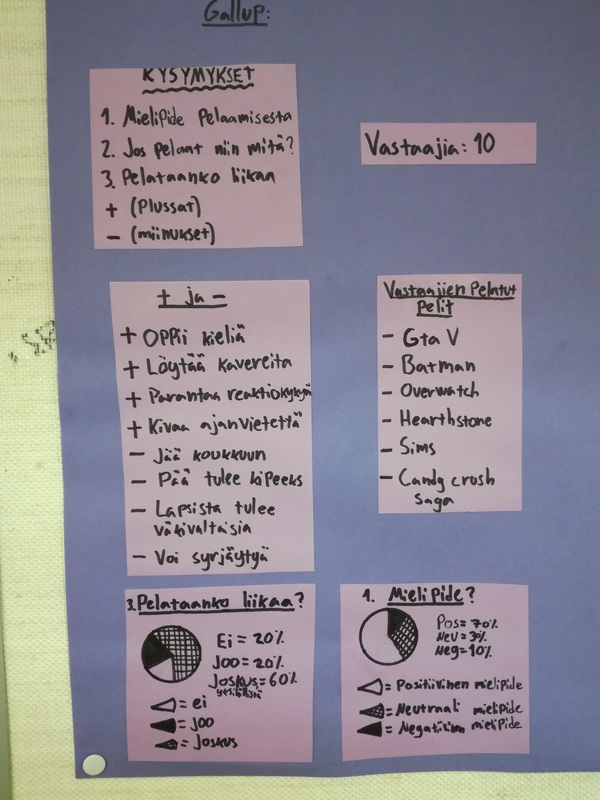 Gallup:
KYSYMYKSET
1. Mielipide Pelaamisesta
2. Jos pelaat niin mitä?
3. Pelataanko liikaa
+ (Plussat)
– (miinukset)
Vastaajia: 10
+ ja –
+ OPPii kieliä
+ Löytää kavereita
+ Parantaa reaktiokykyä
+ Kivaa ajanvietettä
– Jää koukkuun
– Pää tulee kipeeks
– Lapsista tulee
väkivaltaisia
– Voi syrjäytyä
Vastaajien Pelatut
Pelit
– Gta V
– Batman
– Overwatch
– Hearthstone
– Sims
– Candy crush
saga
3. Pelataanko liikaa?
Ei = 20%
Joo = 20%
Joskus = 60%
= ei
= joo
= Joskus
1. Mielipide?
Pos = 70%
Neg = 10%
= Positiivinen mielipide
= Neutraali mielipide
= Negatiivinen mielipide